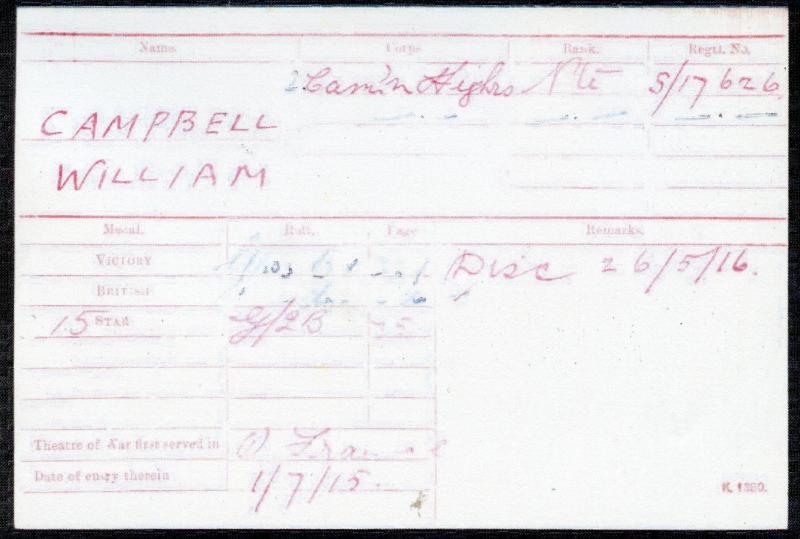 Name. Corps. Rank. Regtl. No.
2 Cam'n Highrs Pte S/17626
CAMPBELL
WILLIAM
Medal. Roll. Page Remarks.
VICTORY Disc 26/5/16.
BRITISH
15 STAR G/2B
Theatre of War first served in (1) France
Date of entry therein 1/7/15.
K. 1380.